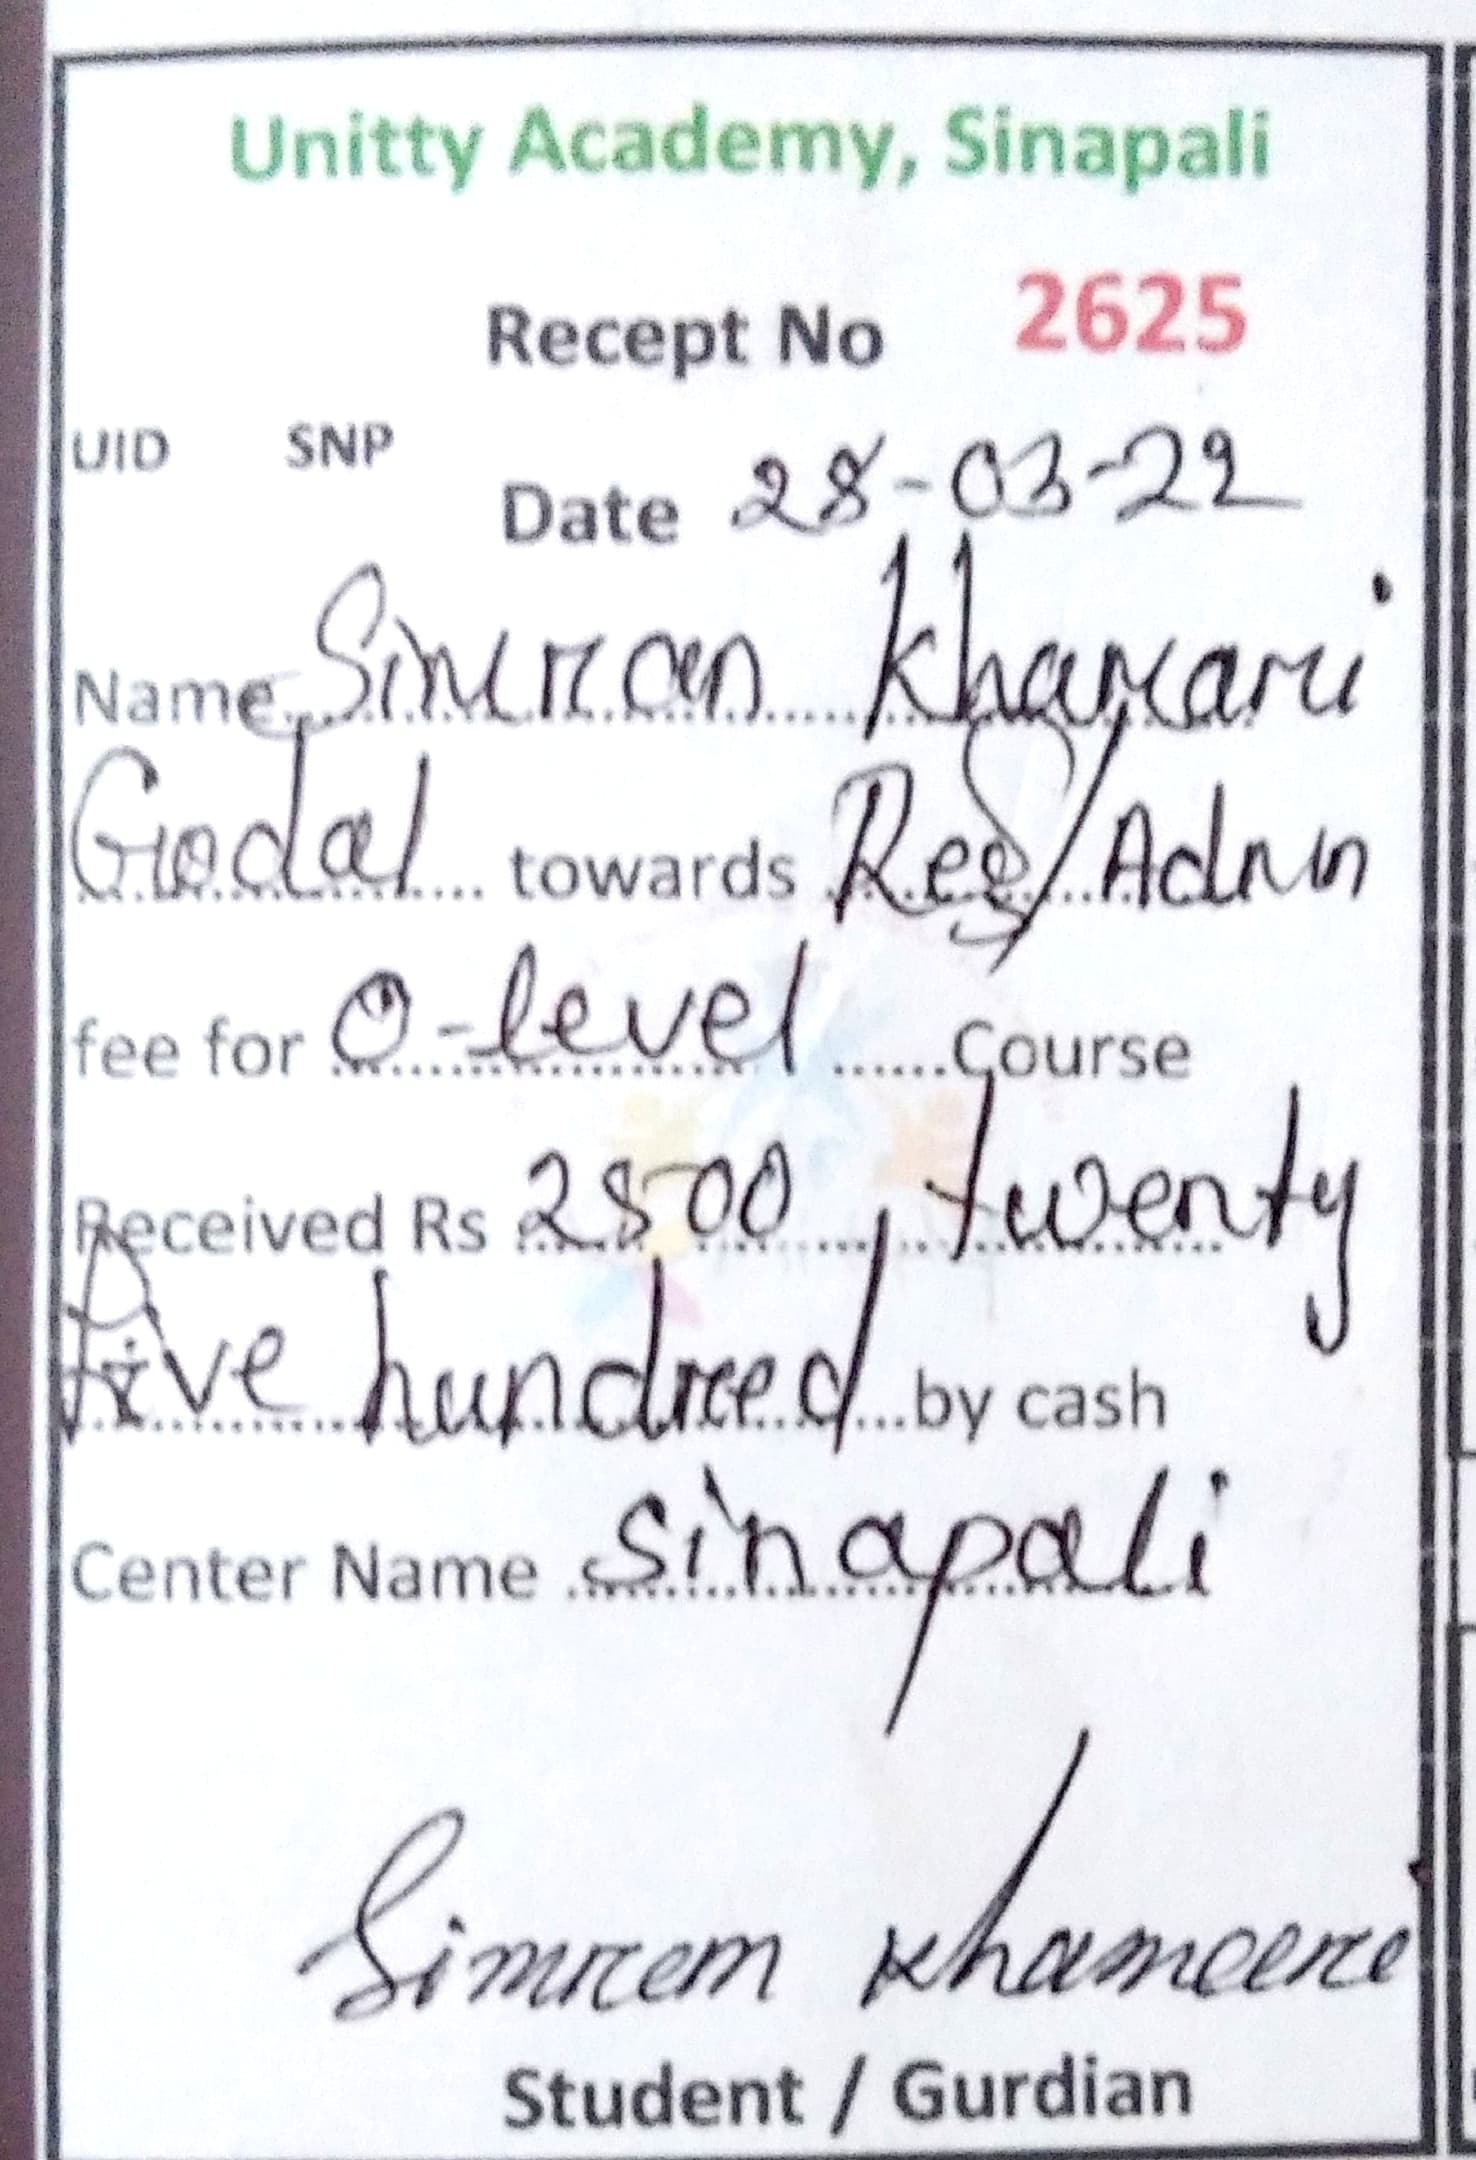 Unitty Academy, Sinapali
Recept No 2625
UID SNP
Date 28-03-22
Name Simran Khamari
Godal towards Reg/Admn
fee for O-level Course
Received Rs 2500, twenty
five hundred by cash
Center Name Sinapali
Simran Khamari
Student / Gurdian